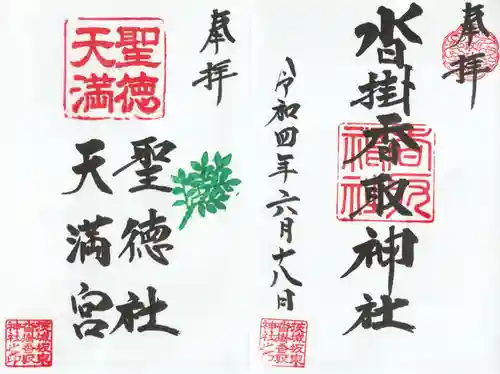 奉拝
沓掛香取神社
令和四年六月十八日
香取神社
奉拝
聖徳社
天満宮
聖徳
天満